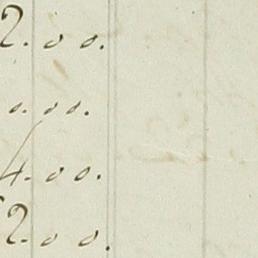 2.00.
0.00.
4.00.
2.00.